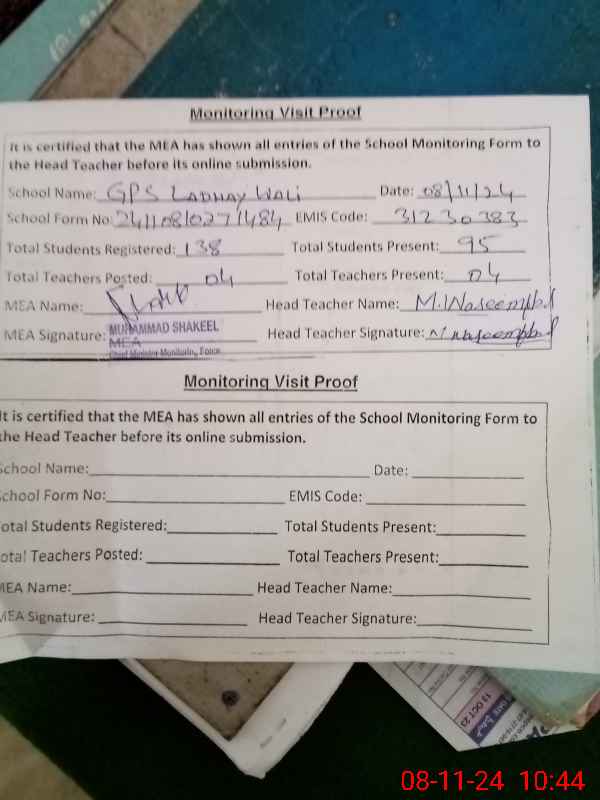 Monitoring Visit Proof
It is certified that the MEA has shown all entries of the School Monitoring Form to
the Head Teacher before its online submission.
School Name: GPS LADHAY WALI Date: 08/11/24
School Form No: 24110810271484 EMIS Code: 31230383
Total Students Registered: 138 Total Students Present: 95
Total Teachers Posted: 04 Total Teachers Present: 04
MEA Name: Head Teacher Name: M.
MEA Signature: MUHAMMAD SHAKEEL Head Teacher Signature:
MEA
Chief Minister Monitoring Force
Monitoring Visit Proof
It is certified that the MEA has shown all entries of the School Monitoring Form to
the Head Teacher before its online submission.
School Name: Date:
School Form No: EMIS Code:
Total Students Registered: Total Students Present:
Total Teachers Posted: Total Teachers Present:
MEA Name: Head Teacher Name:
MEA Signature: Head Teacher Signature:
13 OCT 23
08-11-24 10:44